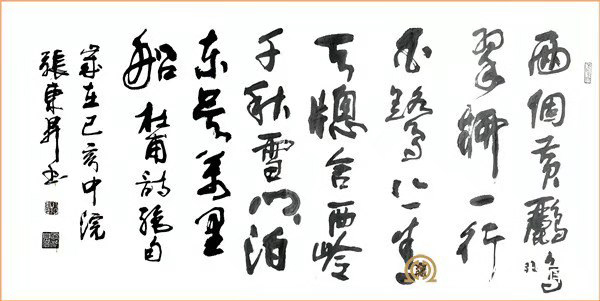 两個黄鸝鸣
翠柳一行
白鷺上青
天牕含西岭
千秋雪门泊
东吴萬里
船 杜甫詩绝句
歲在己亥中浣
張東昇书